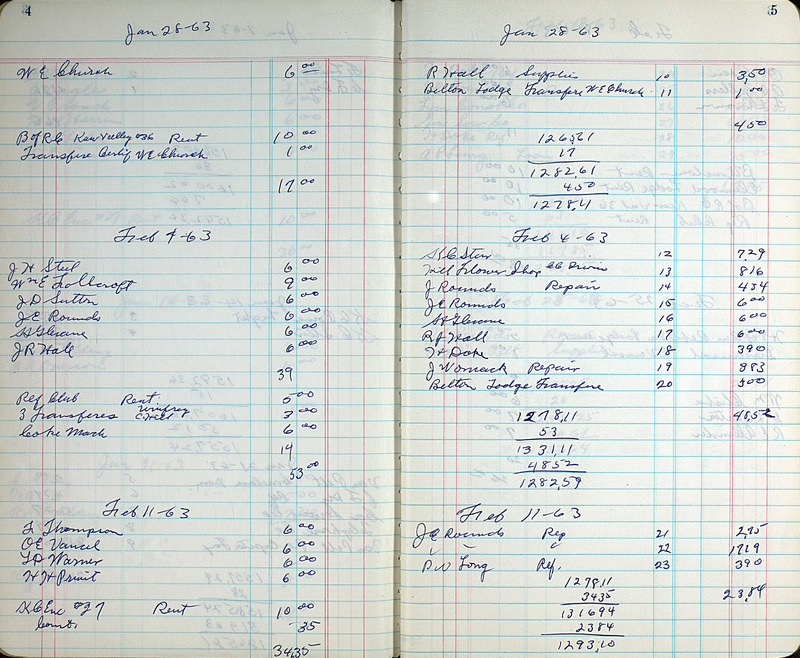 4
Jan 28-63
W E Church 6 00
B of R C Kaw Valley 036 Rent 10 00
Transfere Certif W E Church 1 00
17 00
Feb 4-63
J H Steel 6 00
Wm E Follcroft 9 00
J D Sutton 6 00
J E Rounds 6 00
6 00
J R Hall 6 00
39
Ref Club Rent 5 00
3 Transferes 3 00
Coke Mach 6 00
14
53 00
Feb 11-63
F Thompson 6 00
O E Vancel 6 00
L D Warner 6 00
H H Pruit 6 00
Rent 10 00
35
34 35
5
Jan 28-63
R Hall Supplies 10 3,50
Belton Lodge Transfere W E Church 11 1 00
4 50
1265,61
17
1282,61
4 50
1278,11
Feb 4-63
K C Star 12 7 29
Flower Shop 13 8 16
J Rounds Repair 14 4 34
J E Rounds 15 6 00
16 6 00
R J Hall 17 6 00
18 3 90
J Womack Repair 19 3 83
Belton Lodge Transfere 20 3 00
1278,11
48,52
53
1331,11
48 52
1282,59
Feb 11-63
J E Rounds Rep 21 2,75
22 17 19
D W Long Ref. 23 3 90
1278 11
34 35
23,84
1316 94
23 84
1293,10